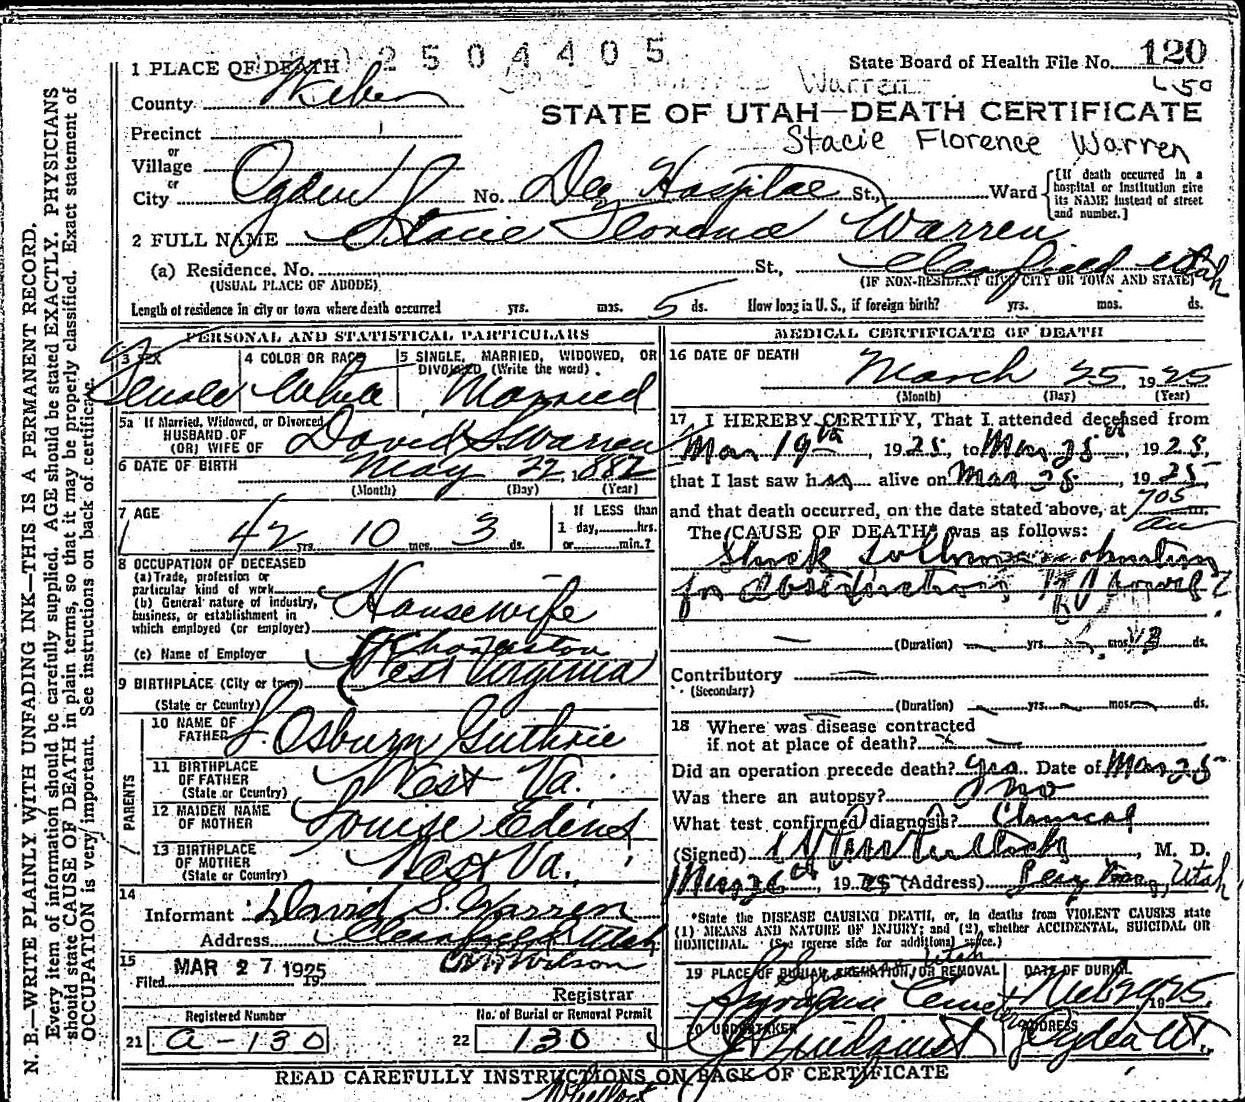 2504405
State Board of Health File No. 120
1 PLACE OF DEATH
Warren
County Weber
STATE OF UTAH—DEATH CERTIFICATE
Precinct
or
Stacie Florence Warren
Village
or
City Ogden No. Dee Hospital St., Ward
[If death occurred in a hospital or institution give its NAME instead of street and number.]
2 FULL NAME Stacie Florence Warren
(a) Residence. No. St., Clearfield Utah
(USUAL PLACE OF ABODE) (IF NON-RESIDENT GIVE CITY OR TOWN AND STATE)
Length of residence in city or town where death occurred yrs. mos. 5 ds. How long in U. S., if foreign birth? yrs. mos. ds.
PERSONAL AND STATISTICAL PARTICULARS
3 SEX
Female
4 COLOR OR RACE
White
5 SINGLE, MARRIED, WIDOWED, OR
DIVORCED (Write the word)
Married
5a If Married, Widowed, or Divorced
HUSBAND OF
(OR) WIFE OF David S. Warren
6 DATE OF BIRTH May 22, 1882
(Month) (Day) (Year)
7 AGE
42 yrs. 10 mos. 3 ds.
If LESS than
1 day, hrs.
or min.?
8 OCCUPATION OF DECEASED
(a) Trade, profession or
particular kind of work
(b) General nature of industry,
business, or establishment in
which employed (or employer)
Housewife
(c) Name of Employer
Charleston
9 BIRTHPLACE (City or town) West Virginia
(State or Country)
PARENTS
10 NAME OF
FATHER J. Osburn Guthrie
11 BIRTHPLACE
OF FATHER
(State or Country) West Va.
12 MAIDEN NAME
OF MOTHER Louise Edens
13 BIRTHPLACE
OF MOTHER
(State or Country) West Va.
14
Informant David S. Warren
Address Clearfield Utah
15
Filed MAR 27 1925 Wilson
19
Registrar
Registered Number
21 a-130
No. of Burial or Removal Permit
22 130
MEDICAL CERTIFICATE OF DEATH
16 DATE OF DEATH
March 25, 1925
(Month) (Day) (Year)
17 I HEREBY CERTIFY, That I attended deceased from
Mar 19th, 1925, to Mar 25, 1925,
that I last saw her alive on Mar 25, 1925
and that death occurred, on the date stated above, at 705 m.
am
The CAUSE OF DEATH* was as follows:
Shock following operation
for obstruction of bowel
(Duration) yrs. mos. ds.
Contributory
(Secondary)
(Duration) yrs. mos. ds.
18 Where was disease contracted
if not at place of death?
Did an operation precede death? Yes Date of Mar 25
Was there an autopsy? no
What test confirmed diagnosis? Clinical
(Signed) M. D.
Mar 26th, 1925 (Address) Utah
*State the DISEASE CAUSING DEATH, or, in deaths from VIOLENT CAUSES state
(1) MEANS AND NATURE OF INJURY; and (2), whether ACCIDENTAL, SUICIDAL OR
HOMICIDAL. (See reverse side for additional space.)
19 PLACE OF BURIAL, CREMATION, OR REMOVAL
Syracuse Utah
Syracuse Cemetery
DATE OF BURIAL
1925
20 UNDERTAKER
Lindquist
ADDRESS
Ogden Ut.
READ CAREFULLY INSTRUCTIONS ON BACK OF CERTIFICATE
N. B.—WRITE PLAINLY WITH UNFADING INK—THIS IS A PERMANENT RECORD.
Every item of information should be carefully supplied. AGE should be stated EXACTLY. PHYSICIANS
should state CAUSE OF DEATH in plain terms, so that it may be properly classified. Exact statement of
OCCUPATION is very important. See instructions on back of certificate.